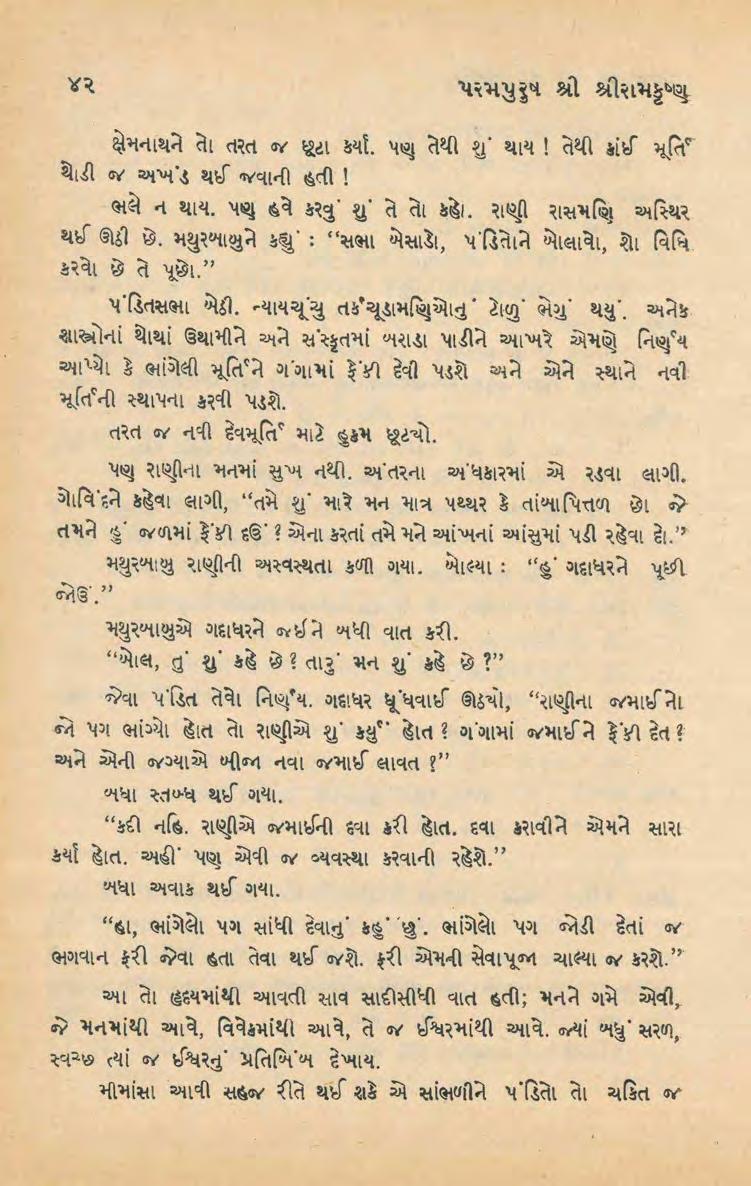 ૪૨ પરમપુરુષ શ્રી શ્રીરામકૃષ્ણ
ક્ષેમનાથને તો તરત જ છૂટા કર્યા. પણ તેથી શું થાય ! તેથી કાંઈ મૂર્તિ
થોડી જ અખંડ થઈ જવાની હતી !
ભલે ન થાય. પણ હવે કરવું શું તે તો કહો. રાણી રાસમણિ અસ્થિર
થઈ ઊઠી છે. મથુરબાબુને કહ્યું : “સભા બેસાડો, પંડિતોને બોલાવો, શો વિધિ
કરવો છે તે પૂછો.”
પંડિતસભા બેઠી. ન્યાયચૂંચુ તર્કચૂડામણિઓનું ટોળું ભેગું થયું. અનેક
શાસ્ત્રોનાં થોથાં ઉથામીને અને સંસ્કૃતમાં બરાડા પાડીને આખરે એમણે નિર્ણય
આપ્યો કે ભાંગેલી મૂર્તિને ગંગામાં ફેંકી દેવી પડશે અને એને સ્થાને નવી
મૂર્તિની સ્થાપના કરવી પડશે.
તરત જ નવી દેવમૂર્તિ માટે હુકમ છૂટ્યો.
પણ રાણીના મનમાં સુખ નથી. અંતરના અંધકારમાં એ રડવા લાગી.
ગોવિંદને કહેવા લાગી, “તમે શું મારે મન માત્ર પથ્થર કે તાંબાપિત્તળ છો જે
તમને હું જળમાં ફેંકી દઉં ? એના કરતાં તમે મને આંખનાં આંસુમાં પડી રહેવા દો.”
મથુરબાબુ રાણીની અસ્વસ્થતા કળી ગયા. બોલ્યા : “હું ગદાધરને પૂછી
જોઉં.”
મથુરબાબુએ ગદાધરને જઈને બધી વાત કરી.
“બોલ, તું શું કહે છે ? તારું મન શું કહે છે ?”
જેવા પંડિત તેવો નિર્ણય. ગદાધર ધૂંધવાઈ ઊઠ્યો, “રાણીના જમાઈનો
જો પગ ભાંગ્યો હોત તો રાણીએ શું કર્યું હોત ? ગંગામાં જમાઈને ફેંકી દેત ?
અને એની જગ્યાએ બીજા નવા જમાઈ લાવત ?”
બધા સ્તબ્ધ થઈ ગયા.
“કદી નહિ. રાણીએ જમાઈની દવા કરી હોત. દવા કરાવીને એમને સારા
કર્યા હોત. અહીં પણ એવી જ વ્યવસ્થા કરવાની રહેશે.”
બધા અવાક થઈ ગયા.
“હા, ભાંગેલો પગ સાંધી દેવાનું કહું છું. ભાંગેલો પગ જોડી દેતાં જ
ભગવાન ફરી જેવા હતા તેવા થઈ જશે. ફરી એમની સેવાપૂજા ચાલ્યા જ કરશે.”
આ તો હૃદયમાંથી આવતી સાવ સાદીસીધી વાત હતી; મનને ગમે એવી,
જે મનમાંથી આવે, વિવેકમાંથી આવે, તે જ ઈશ્વરમાંથી આવે. જ્યાં બધું સરળ,
સ્વચ્છ ત્યાં જ ઈશ્વરનું પ્રતિબિંબ દેખાય.
મીમાંસા આવી સહજ રીતે થઈ શકે એ સાંભળીને પંડિતો તો ચકિત જ